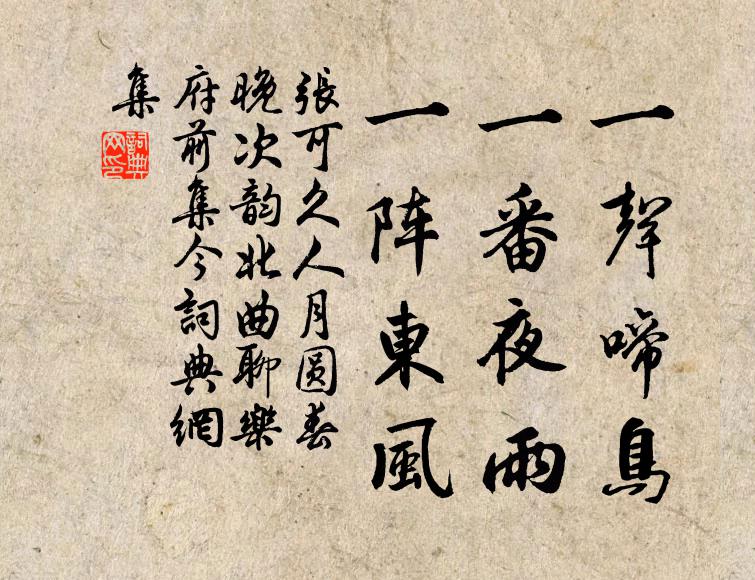 一聲啼鳥
一番夜雨
一阵東風
張可久人月圆春
晚次韵北曲聊樂
府前集今詞典網
集
詞典網印